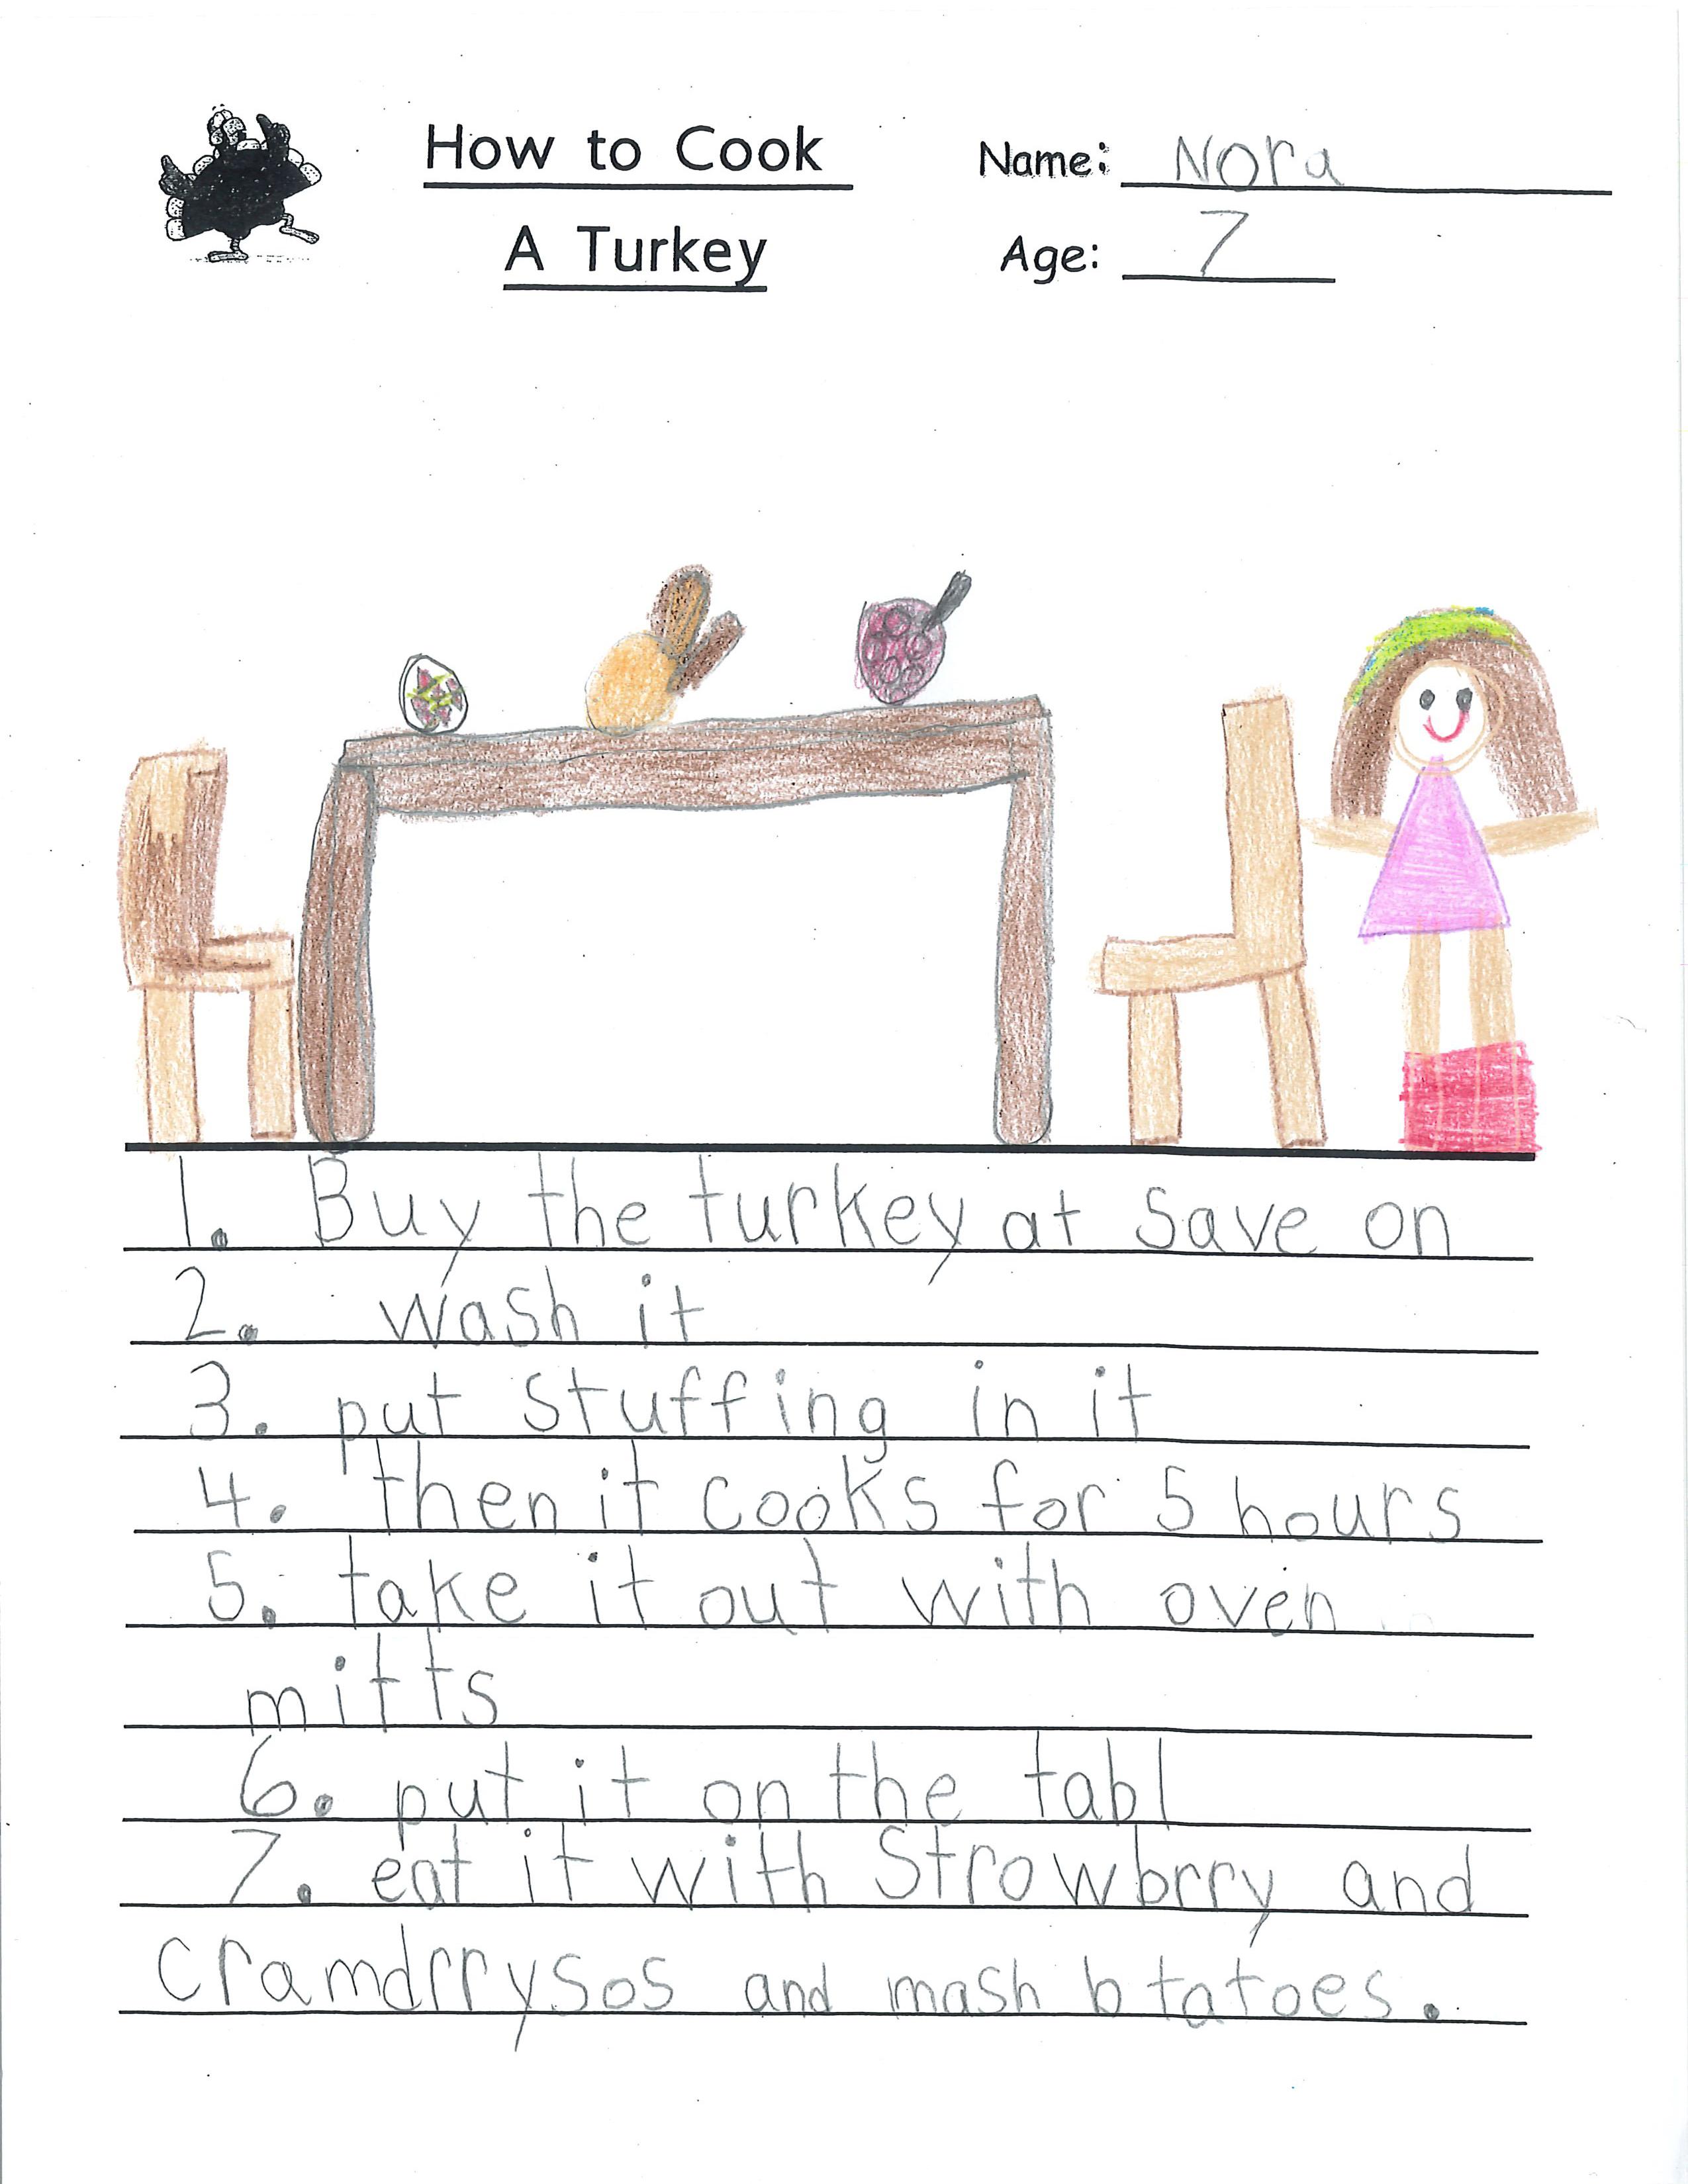 How to Cook
A Turkey
Name: Nora
Age: 7
1. Buy the turkey at save on
2. wash it
3. put stuffing in it
4. then it cooks for 5 hours
5. take it out with oven
mitts
6. put it on the tabl
7. eat it with Strowbrry and
cramdrrysos and mash btatoes.